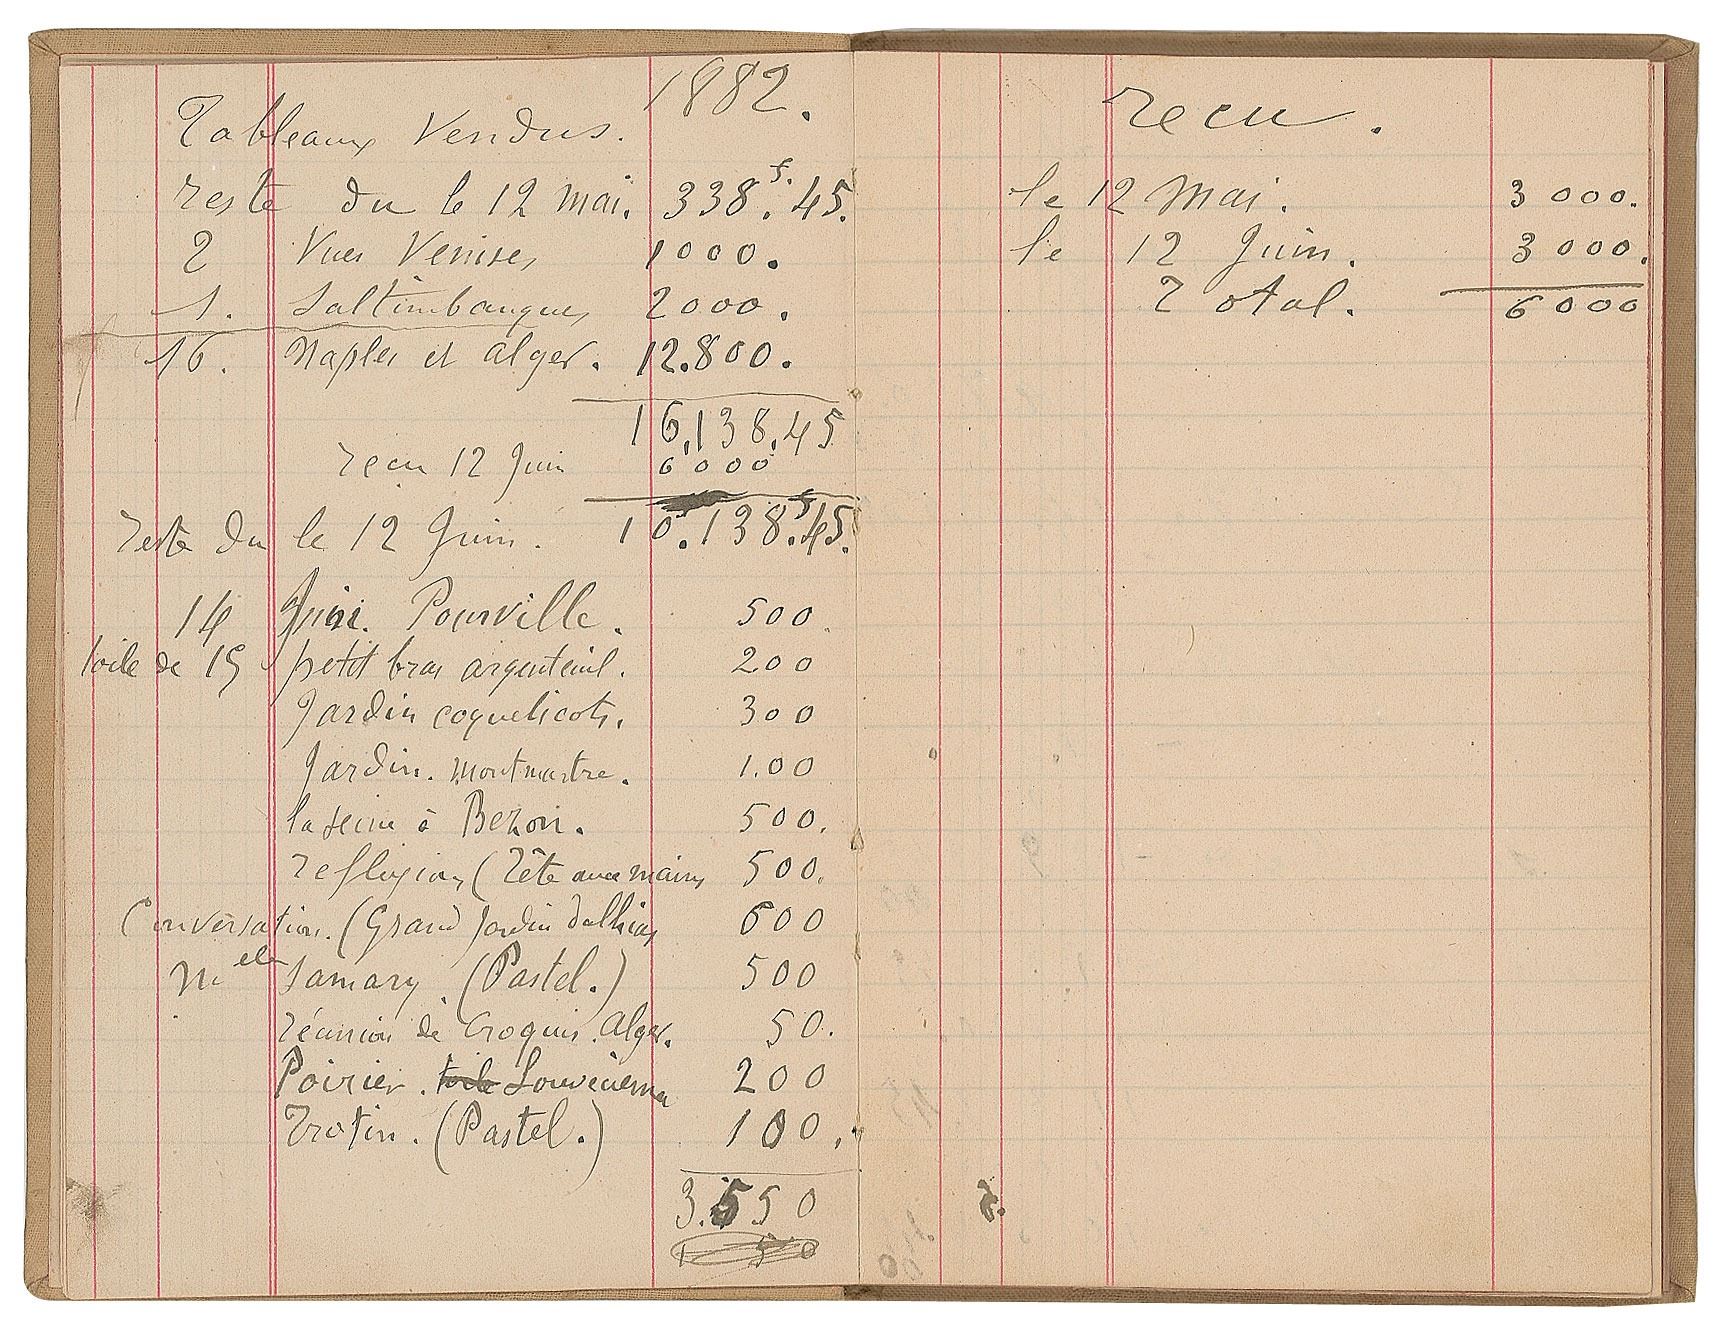 1882.
Tableaux Vendus.
reste du le 12 mai. 338.f.45.
2 Vues Venises 1000.
1. Saltimbanques 2000.
16. Naples et alger. 12.800.
16.138.45
recu 12 Juin 6000
reste du le 12 Juin. 10.138.f.45.
14 Juin. Pourville. 500.
toile de 15 petit bras argenteuil. 200
Jardin coquelicots. 300
Jardin. Montmartre. 1.00
la seine à Bezon. 500.
reflexion (Tête avec mains 500.
Conversation. (Grand Jardin dalhias 600
Melle Samary. (Pastel.) 500
réunion de Croquis. Alger. 50.
Poirier. toile Louveciennes 200
Trotin. (Pastel.) 100.
3.550
recu.
le 12 Mai. 3 000.
le 12 Juin. 3 000.
Total. 6000